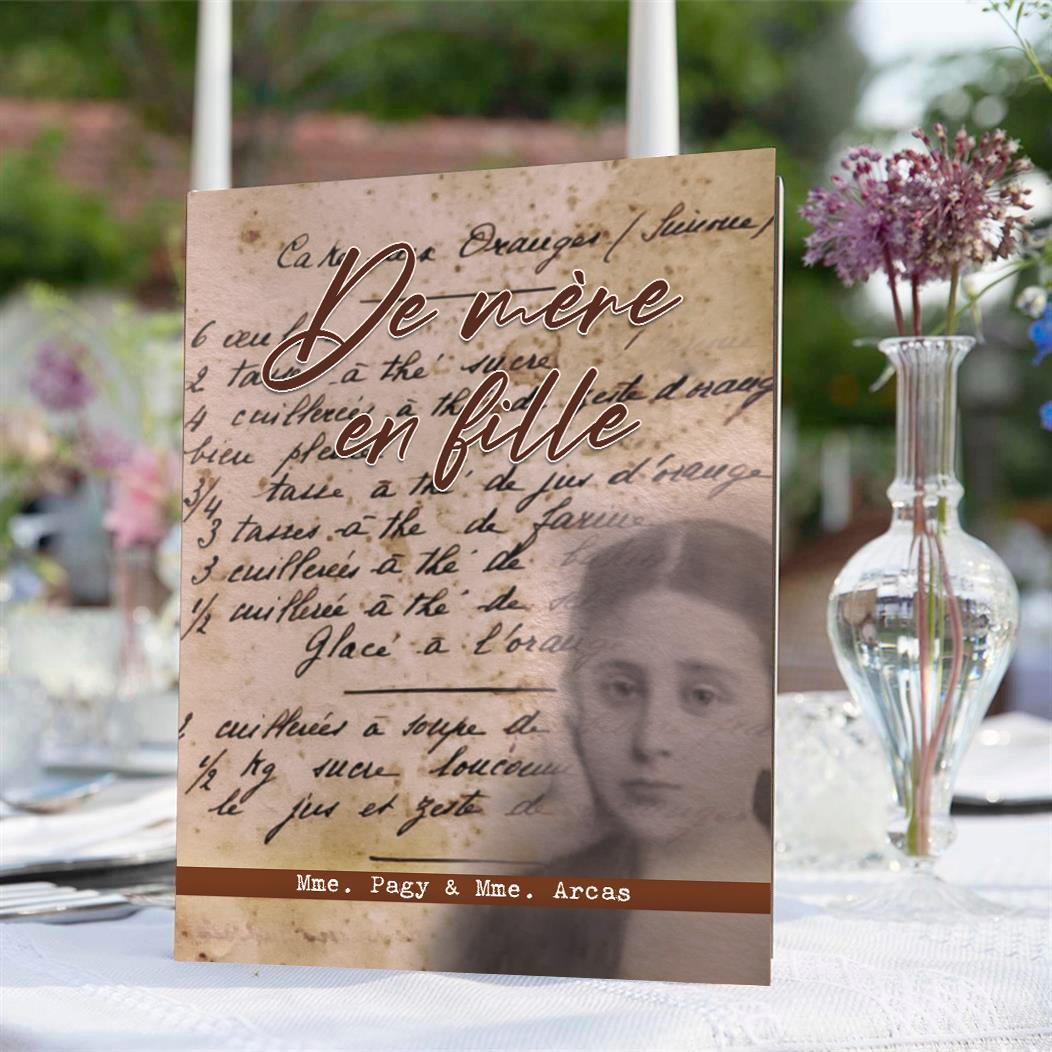 Cake aux Oranges (Simone)
De mère
6
2 tasses à thé sucre
4 cuillerées à thé de zeste d'orange
en fille
bien
3/4 tasse à thé de jus d'orange
3 tasses à thé de farine
3 cuillerées à thé de
1/2 cuillerée à thé de
Glacé à l'orange
cuillerées à soupe de
1/2 kg sucre
le jus et zeste de
Mme. Pagy & Mme. Arcas